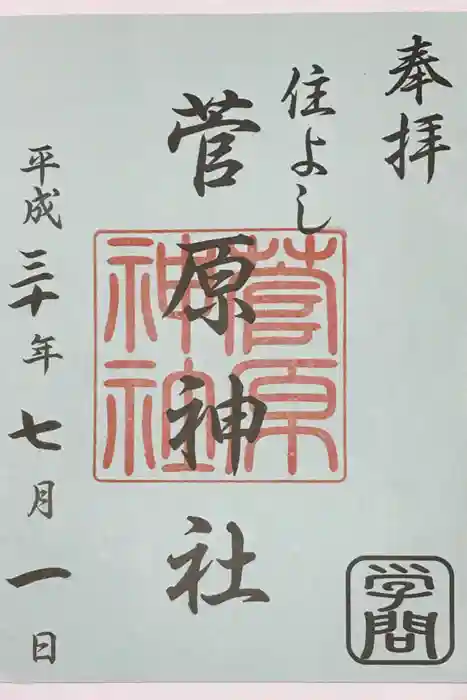 奉拝
住よし
菅原神社
菅原
神社
平成三十年七月一日
学問